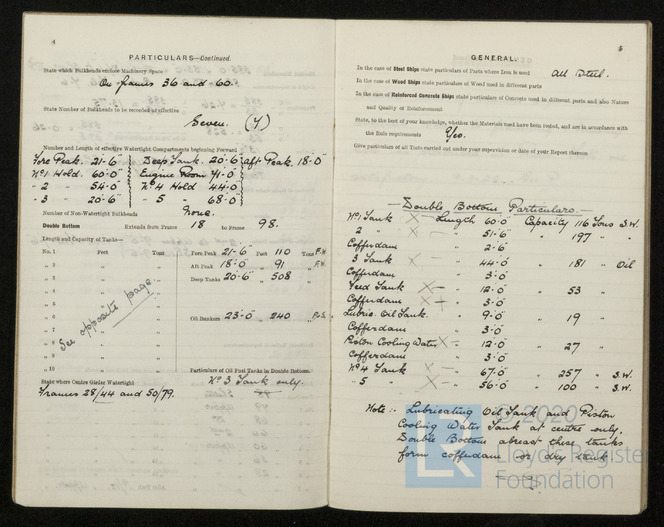 4
PARTICULARS—Continued.
State which Bulkheads enclose Machinery Space
On frames 36 and 60.
State Number of Bulkheads to be recorded as effective
Seven. (7)
Number and Length of effective Watertight Compartments beginning Forward
Fore Peak. 21-6" Deep Tank. 20-6" aft Peak. 18-0"
No1 Hold. 60-0" Engine Room 71-0"
- 2 " 54-0" No 4 Hold 44-0"
- 3 " 20-6" - 5 " 68-0"
Number of Non-Watertight Bulkheads None.
Double Bottom Extends from Frame 18 to Frame 98.
Length and Capacity of Tanks—
No. 1 Feet Tons Fore Peak 21-6" Feet 110 Tons F.W.
„ 2 „ „ Aft Peak 18-0" „ 91 „ F.W.
„ 3 „ „ Deep Tanks 20-6" „ 508 „
„ 4 „ „
„ 5 „ „
„ 6 „ „ Oil Bunkers 23-0" „ 240 „
„ 7 „ „
„ 8 „ „
„ 9 „ „
„ 10 „ „ Particulars of Oil Fuel Tanks in Double Bottom.
See opposite page
No 3 Tank only.
State where Centre Girder Watertight
Frames 28/44 and 50/79.
5
GENERAL.
In the case of Steel Ships state particulars of Parts where Iron is used All Steel.
In the case of Wood Ships state particulars of Wood used in different parts
In the case of Reinforced Concrete Ships state particulars of Concrete used in different parts and also Nature
and Quality of Reinforcement
State, to the best of your knowledge, whether the Materials used have been tested, and are in accordance with
the Rule requirements Yes.
Give particulars of all Tests carried out under your supervision or date of your Report thereon
Double Bottom Particulars.
No1 Tank Length 60-0" Capacity 116 Tons S.W.
2 " " 51-6" " 197 " "
Cofferdam 2-6"
3 Tank " 44-0" " 181 " Oil
Cofferdam 3-0"
Feed Tank " 12-0" " 53
Cofferdam " 3-0"
Lubric. Oil Tank. 9-0" " 19
Cofferdam 3-0"
Piston Cooling Water " 12-0" " 27
Cofferdam 3-0"
No 4 Tank " 67-0" " 257 " S.W.
- 5 " " 56-0" " 100 " S.W.
Note :- Lubricating Oil Tank and Piston
Cooling Water Tank at centre only,
Double Bottom abreast these tanks
form cofferdam or dry tank
© 2020
LR
Lloyd's Register
Foundation